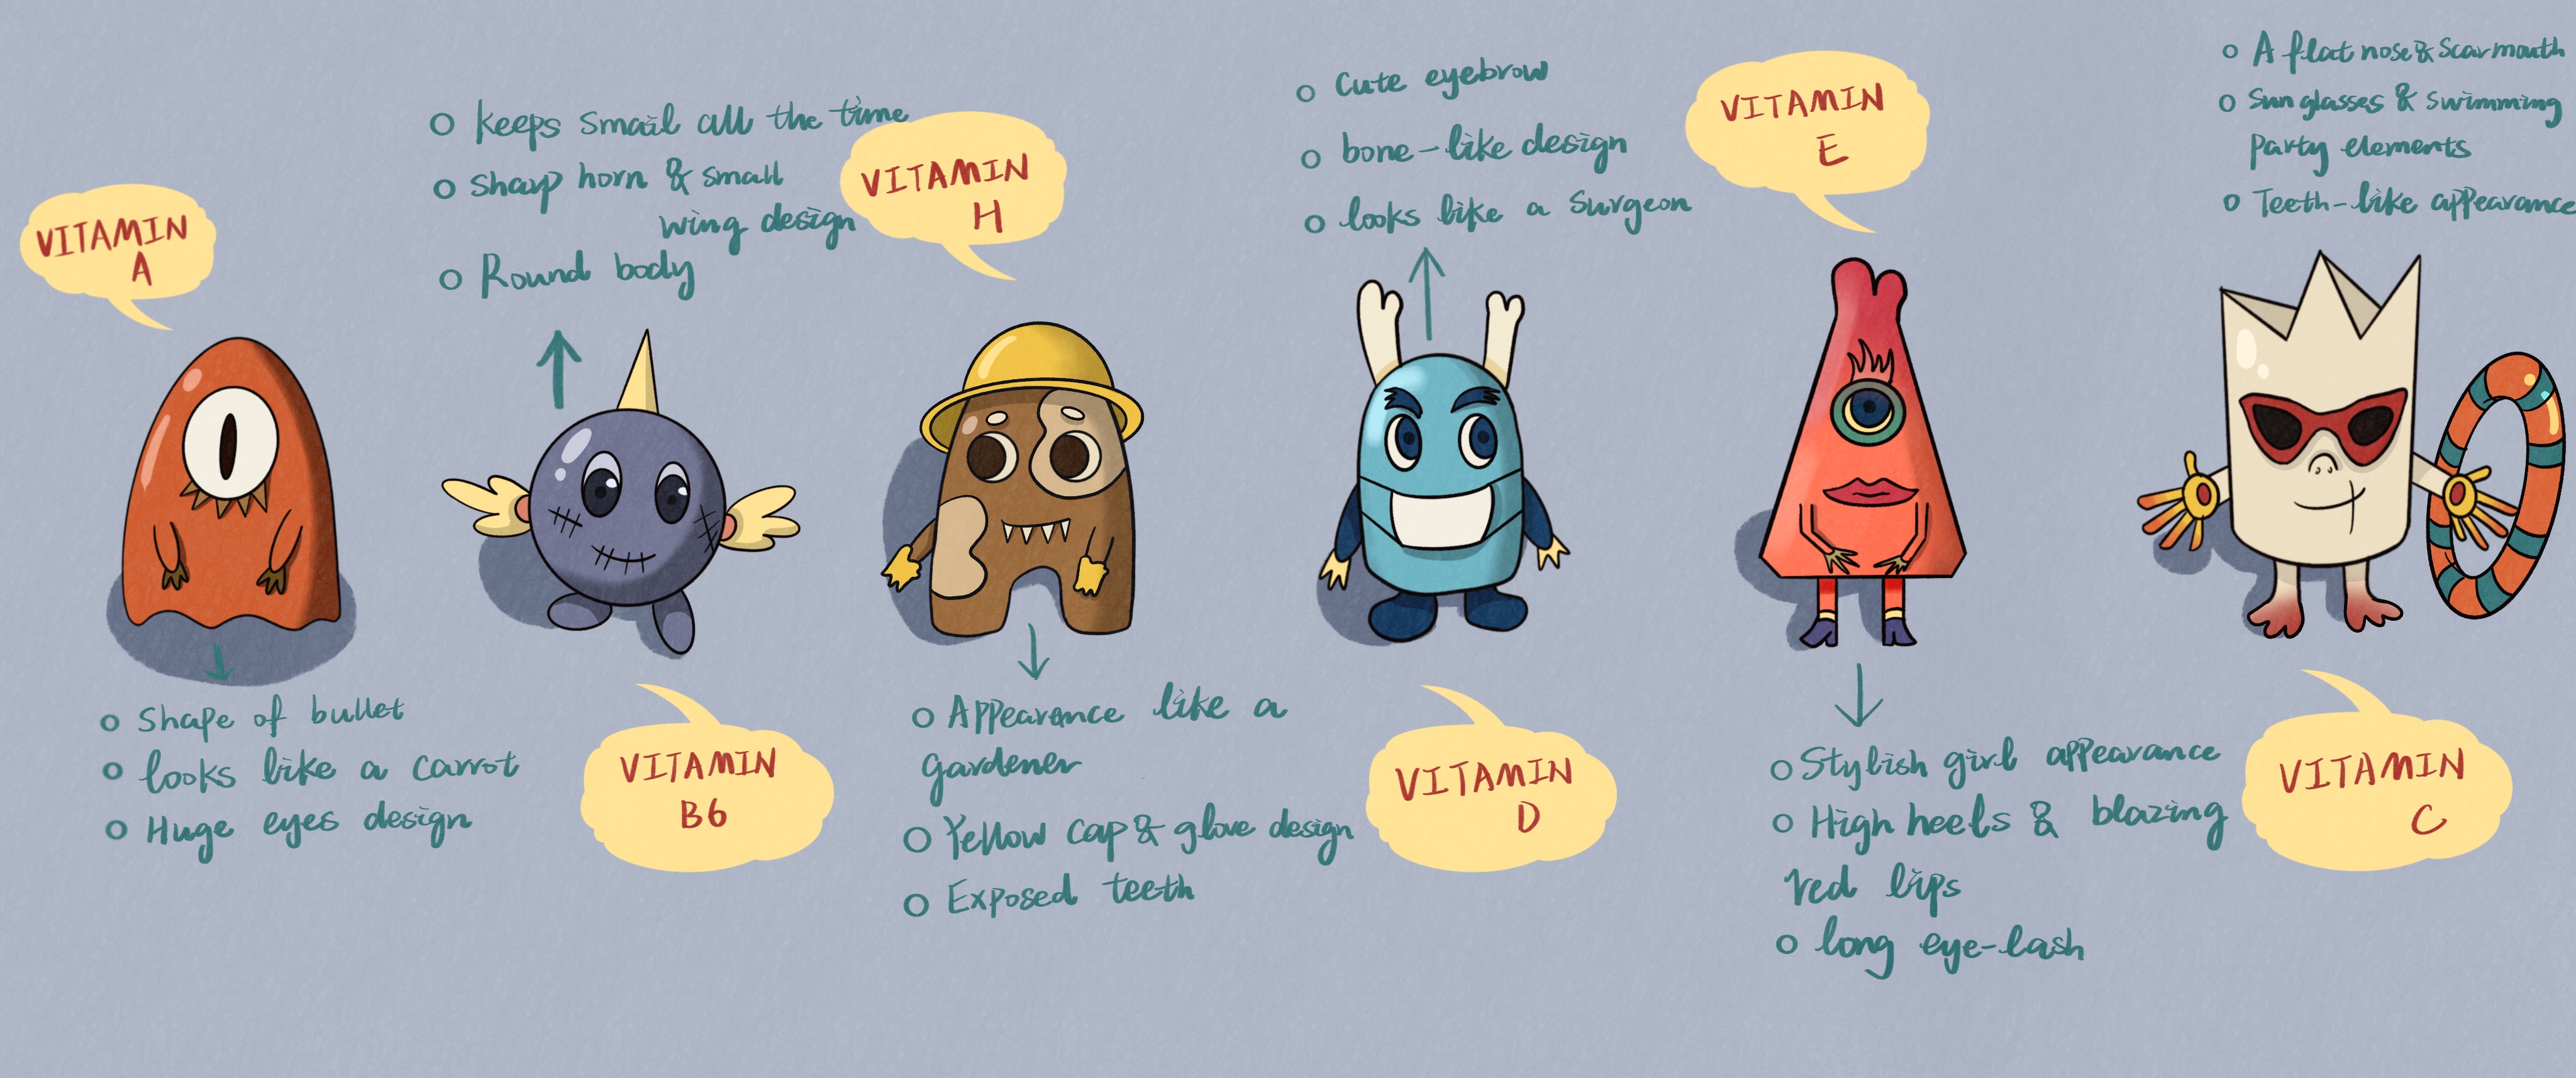 VITAMIN
A
O Shape of bullet
O looks like a carrot
O Huge eyes design
O keeps smail all the time
O sharp horn & small
wing design
O Round body
VITAMIN
B6
VITAMIN
H
O Appearence like a
gardener
O Yellow cap & glove design
O Exposed teeth
O Cute eyebrow
O bone-like design
O looks like a Surgeon
VITAMIN
D
VITAMIN
E
O Stylish girl appearance
O High heels & blazing
red lips
O long eye-lash
O A flat nose & Scar mouth
O Sun glasses & swimming
Party elements
O Teeth-like appearance
VITAMIN
C